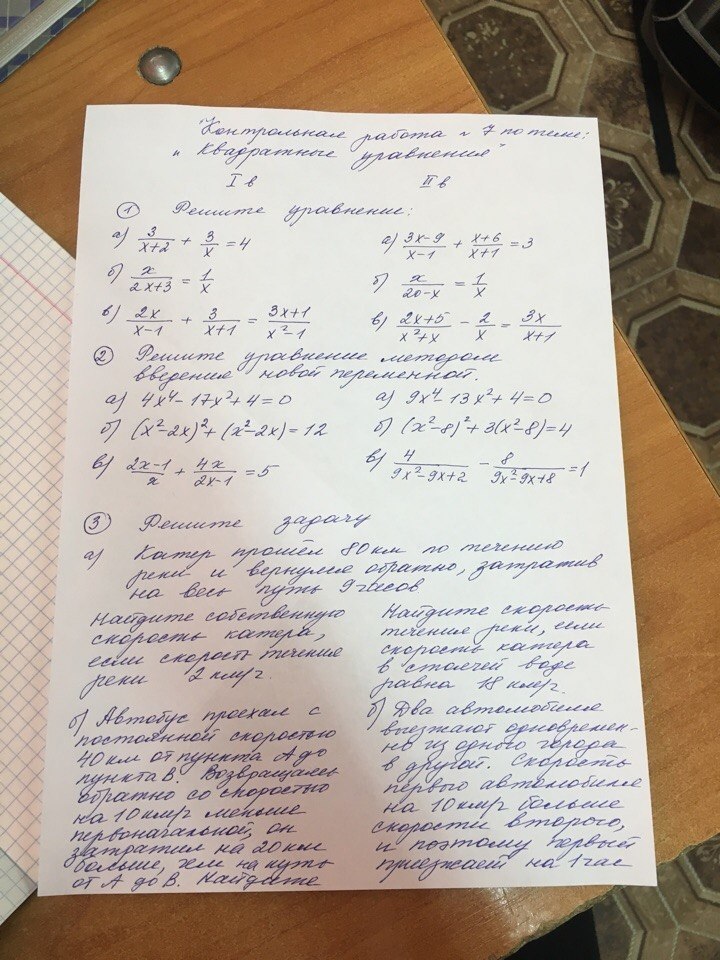 "Контрольная работа № 7 по теме:
"Квадратные уравнения"
I в II в
① Решите уравнение:
а) 3/(x+2) + 3/x = 4 а) (3x-9)/(x-1) + (x+6)/(x+1) = 3
б) x/(2x+3) = 1/x б) x/(20-x) = 1/x
в) 2x/(x-1) + 3/(x+1) = (3x+1)/(x²-1) в) (2x+5)/(x²+x) - 2/x = 3x/(x+1)
② Решите уравнение методом
введения новой переменной.
а) 4x⁴-17x²+4=0 а) 9x⁴-13x²+4=0
б) (x²-2x)²+(x²-2x)=12 б) (x²-8)²+3(x²-8)=4
в) (2x-1)/x + 4x/(2x-1) = 5 в) 4/(9x²-9x+2) - 8/(9x²-9x+8) = 1
③ Решите задачу
а) Катер прошёл 80 км по течению
реки и вернулся обратно, затратив
на весь путь 9 часов
Найдите собственную
скорость катера,
если скорость течения
реки 2 км/ч.
б) Автобус проехал с
постоянной скоростью
40 км от пункта А до
пункта В. Возвращаясь
обратно со скоростью
на 10 км/ч меньше
первоначальной, он
затратил на 20 км
больше, чем на путь
от А до В. Найдите
Найдите скорость
течения реки, если
скорость катера
в стоячей воде
равна 18 км/ч.
б) Два автомобиля
выезжают одновремен-
но из одного города
в другой. Скорость
первого автомобиля
на 10 км/ч больше
скорости второго,
и поэтому первый
приезжает на 1 час